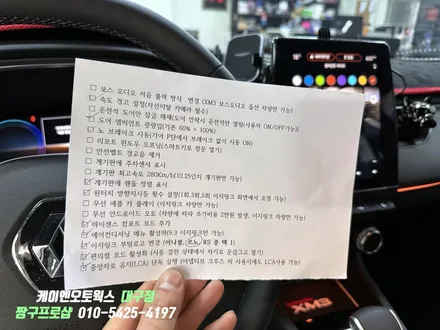 ☐ 보스 오디오 저음 출력 방식 변경 (XM3 보스오디오 옵션 차량만 가능)
☐ 속도 경고 설정(차선이탈 카메라 필수)
☐ 운전석 도어만 잠금 해제(도어 언락시 운전석만 열림(사용자 ON/OFF가능))
☑ 도어 엠비언트 광량업(기존 60% > 100%)
☑ 노 브레이크 시동(기어 P단에서 브레이크 없이 시동 ON)
☐ 리모트 윈도우 오프닝(스마트키로 창문 열기)
☐ 안전벨트 경고음 제거
☐ 계기판에 주차센서 표시
☐ 계기판 최고속도 280Km/h(10.25인치 계기판만 가능)
☑ 계기판에 핸들 정렬 표시
☑ 원터치 방향지시등 횟수 설정(1회,3회,5회 이지링크 화면에서 조정 가능)
☐ 무선 애플 카 플레이 (이지링크 차량만 가능)
☐ 무선 안드로이드 오토 (차량에 따라 추가비용 2만원 발생, 이지링크 차량만 가능)
☑ 마이센스 컴포트 모드 추가
☑ 에어컨디셔닝 메뉴 활성화(9.3 이지링크만 가능)
☑ 이지링크 부팅로고 변경 (이니셜, 르노, RS 중 택 1)
☑ 편의점 모드 활성화 (시동 걸린 상태에서 차키로 문잠그고 열기)
☑ 중앙차로 유지(LCA) 단독 실행 (어댑티브 크루즈 미 사용시에도 LCA사용 가능)
XM3
케이엔오토웍스 대구점
짱구프로샵 010-5425-4197